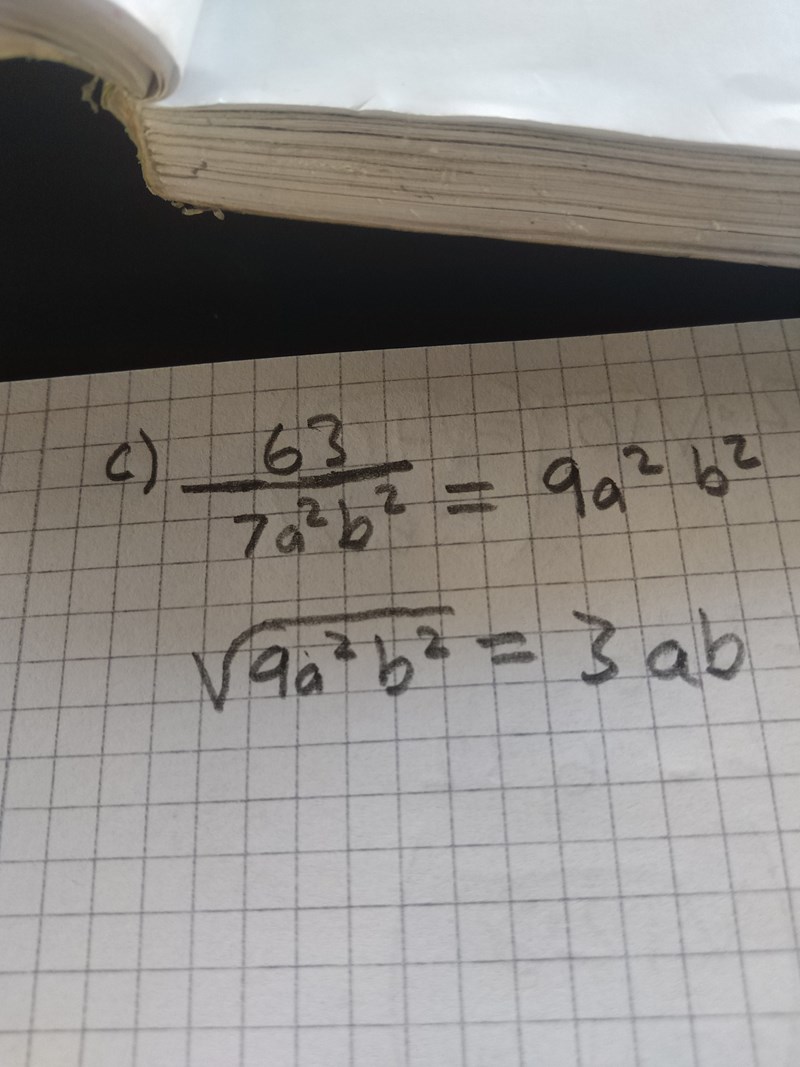 c) 63/7a²b² = 9a² b²
√9a²b² = 3ab